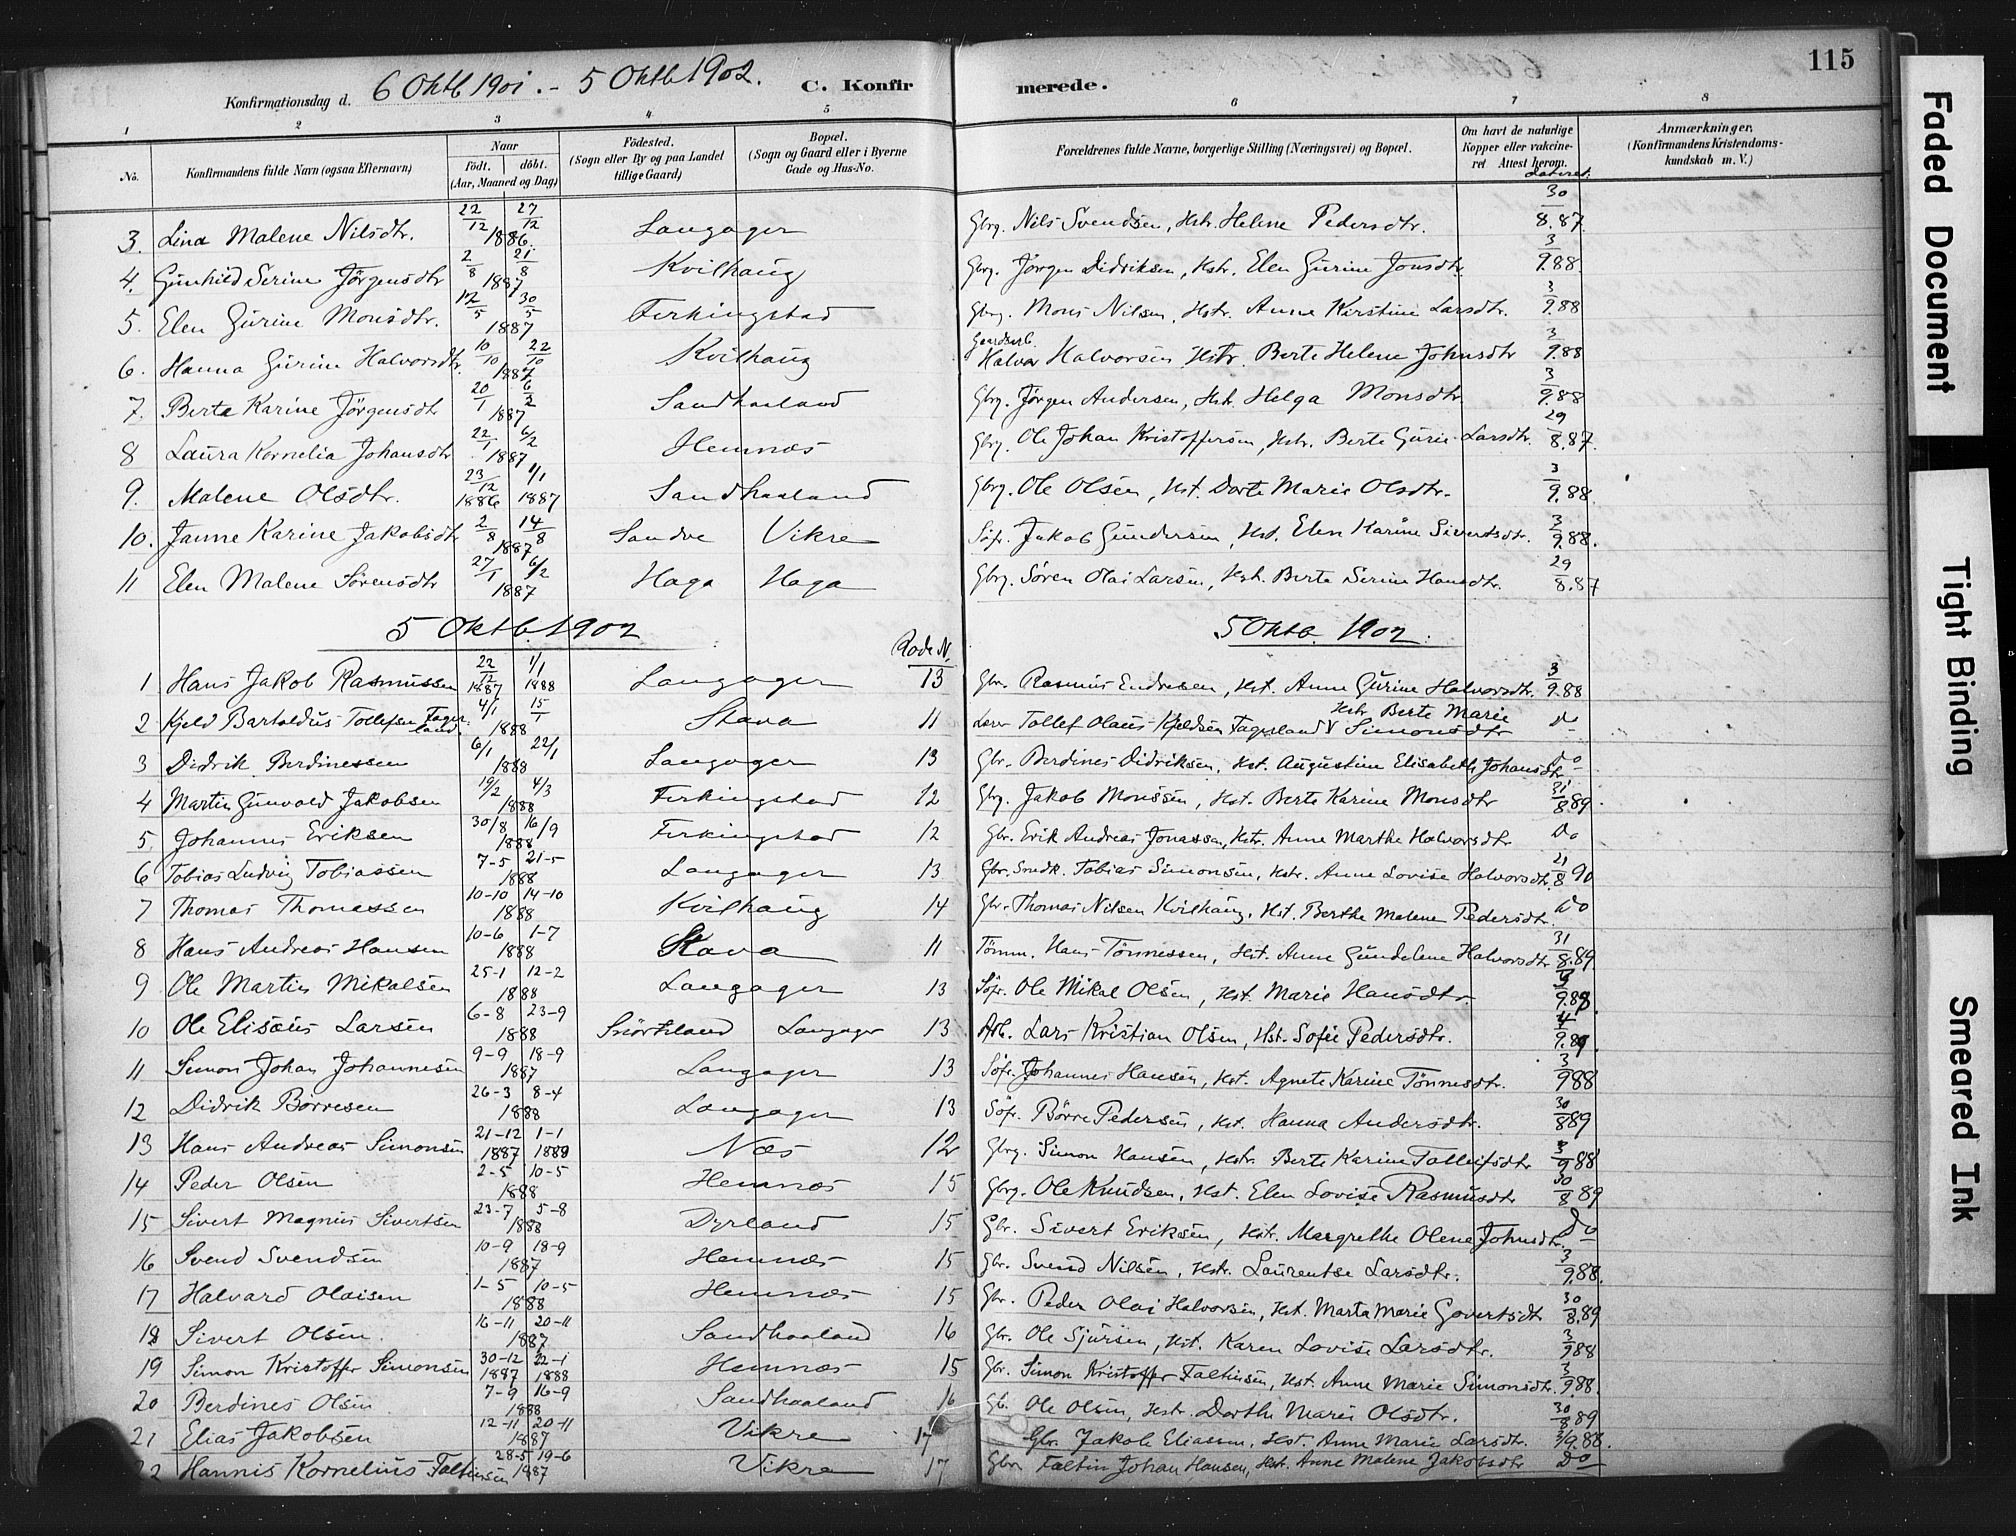 115
6 Oktb 1901. - 5 Oktb 1902.
Konfirmationsdag d.
C. Konfirmerede.
1 2 3 4 5 6 7 8
No.
Konfirmandens fulde Navn (ogsaa Efternavn)
Naar
födt. döbt.
(Aar, Maaned og Dag)
Födested.
(Sogn eller By og paa Landet
tillige Gaard)
Bopæl.
(Sogn og Gaard eller i Byerne
Gade og Hus-No.
Forældrenes fulde Navne, borgerlige Stilling (Næringsvei) og Bopæl.
Om havt de naturlige
Kopper eller vakcine-
ret Attest herom.
dateret.
Anmærkninger.
(Konfirmandens Kristendoms-
kundskab m. V.)
3. Lina Malene Nilsdtr. 22/12 27/12 1886. Langager Gbrg. Nils Svendsen, Hstr. Helene Pedersdtr. 30/8.87.
4. Gunhild Serine Jörgensdtr 2/8 21/8 1887 Kvilhaug Gbrg. Jörgen Didriksen, Hstr. Elen Gurine Jonsdtr. 3/9.88.
5. Elen Gurine Monsdtr. 12/5 30/5 1887 Ferkingstad Gbrg. Mons Nilsen, Hstr. Anne Karstine Larsdtr. 3/9.88
6. Hanna Gurine Halvorsdtr. 10/10 22/10 1887 Kvilhaug Gaardarb. Halvor Halvorsen Hstr. Berte Helene Johnsdtr 3/9.88
7. Berte Karine Jörgensdtr 20/1 6/2 1887 Sandhaaland Gbrg. Jörgen Andersen, Hst. Helga Monsdtr. 3/9.88
8 Laura Kornelia Johansdtr 22/1 6/2 1887 Hemnæs Gbrg. Ole Johan Kristoffersen, Hstr. Berte Gurie Larsdtr. 29/8.87.
9. Malene Olsdtr. 23/12 1886 1/1 1887 Sandhaaland Gbrg. Ole Olsen, Hst. Dorte Marie Olsdtr. 3/9.88.
10. Janne Karine Jakobsdtr 2/8 14/8 1887 Sandve Vikre Söfr. Jakob Gundersen, Hst. Elen Karine Sivertsdtr. 3/9.88.
11 Elen Malene Sörensdtr 27/1 6/2 1887 Haga Haga Gbrg. Sören Olai Larsen, Hst. Berta Serine Hansdtr. 29/8.87
5 Oktb. 1902 5 Oktb. 1902.
Rode N.
1 Hans Jakob Rasmussen 22/12 1887 1/1 1888 Langager 13 Gbr. Rasmus Endresen, Hst. Anne Gurine Halvorsdtr. 3/9.88
2 Kjeld Bartoldus Tollefsen Fagerland. 4/1 15/1 1888 Stava 11 Lærer Tollef Olaus Kjeldsen Fagerland Hstr Berte Marie Simonsdtr do
3 Didrik Berdinessen 6/1 22/1 1888 Langager 13 Gbr. Berdines Didriksen, Hst. Augustine Elisabeth Johansdtr do
4 Martin Gunvald Jakobsen 19/2 4/3 1888 Ferkingstad 12 Gbrg. Jakob Monssen, Hst. Berte Karine Monsdtr 31/8 89.
5 Johannes Eriksen 30/8 16/9 1888 Ferkingstad 12 Gbr. Erik Andreas Jonassen, Hstr. Anne Marthe Halvorsdtr Do
6 Tobias Ludvig Tobiassen 7-5 21-5 1888 Langager 13 Gbr. Smdk. Tobias Simonsen, Hstr. Anne Lovise Halvorsdtr. 21/8 90
7 Thomas Thomassen 10-10 14-10 1888 Kvilhaug 14 Gbr. Thomas Nilsen Kvilhaug, Hst. Berthe Malene Pedersdtr. Do
8 Hans Andreas Hansen 10-6 1-7 1888 Stava 11 Tömm. Hans Tönnessen, Hst. Anne Gundelene Halvorsdtr 31/8.89.
9 Ole Martin Mikalsen 25-1 12-2 1888 Langager 13 Söfr. Ole Mikal Olsen, Hst. Marie Hansdtr. 3/9.88.
10 Ole Elisæus Larsen 6-8 23-9 1888 Langager 13 Arb. Lars Kristian Olsen, Hst. Sofie Pedersdtr. 4/9.89.
11 Simon Johan Johannesen 9-9 18-9 1887 Langager 13 Söfr. Johannes Hansen, Hst. Agnete Karine Tönnesdtr. 3/9 88
12 Didrik Börresen 26-3 8-4 1888 Langager 13 Söfr. Börre Pedersen, Hst. Hanna Andersdtr. 30/8 89
13 Hans Andreas Simonsen 21-12 1887 1-1 1888 Næs 12 Gbrg. Simon Hansen, Hstr. Berte Karine Tolleifsdtr 3/9 88
14 Peder Olsen 2-5 10-5 1888 Hemnæs 15 Gbrg. Ole Knudsen, Hst. Elen Lovise Rasmusdtr 30/8 89
15 Sivert Magnus Sivertsen 23-7 5-8 1888 Dyrland 15 Gbr. Sivert Eriksen, Hstr. Margrethe Olene Johnsdtr. Do
16 Svend Svendsen 10-9 18-9 1887 Hemnæs 15 Gbr. Svend Nilsen, Hstr. Laurentse Larsdtr. 3/9.88.
17 Halvard Olaisen 1-5 10-5 1888 Hemnæs 15 Gbr. Peder Olai Halvorsen, Hst. Marta Marie Govertsdt 30/8.89
18 Sivert Olsen. 16-11 20-11 1887 Sandhaaland 16 Gbr. Ole Sjursen, Hst. Karen Lovise Larsdtr. 3/9 88
19 Simon Kristoffer Simonsen 30-12 1887 22-1 1888 Hemnæs 15 Gbr. Simon Kristoffer Faltinsen, Hst. Anne Marie Simonsdtr. 3/9.88.
20 Berdines Olsen 7-9 16-9 1888 Sandhaaland 16 Gb. Ole Olsen, Hstr. Dorthe Marie Olsdtr. 30/8 89
21 Elias Jakobsen 12-11 20-11 1887 Vikre 17 Gbr. Jakob Eliassen, Hst. Anne Marie Larsdtr. 3/9.88.
22 Hannis Kornelius Faltinsen 28-5 19-6 1887 Vikra 17 Gbr. Faltin Johan Hansen, Hst. Anne Malene Jakobsdtr Do
Faded Document
Tight Binding
Smeared Ink